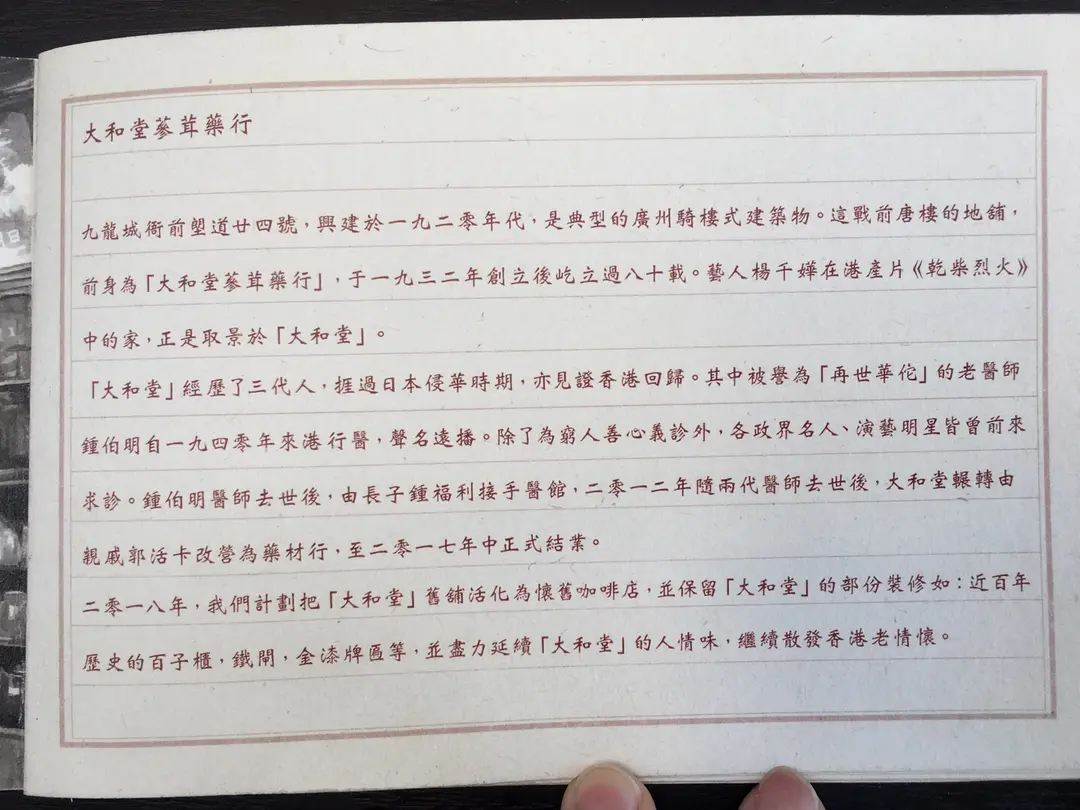 大和堂蔘茸藥行
九龍城衙前塱道廿四號，興建於一九二零年代，是典型的廣州騎樓式建築物。這戰前唐樓的地舖，
前身為「大和堂蔘茸藥行」，于一九三二年創立後屹立過八十載。藝人楊千嬅在港產片《乾柴烈火》
中的家，正是取景於「大和堂」。
「大和堂」經歷了三代人，捱過日本侵華時期，亦見證香港回歸。其中被譽為「再世華佗」的老醫師
鍾伯明自一九四零年來港行醫，聲名遠播。除了為窮人善心義診外，各政界名人、演藝明星皆曾前來
求診。鍾伯明醫師去世後，由長子鍾福利接手醫館，二零一二年隨兩代醫師去世後，大和堂輾轉由
親戚郭活卡改營為藥材行，至二零一七年中正式結業。
二零一八年，我們計劃把「大和堂」舊舖活化為懷舊咖啡店，並保留「大和堂」的部份裝修如：近百年
歷史的百子櫃，鐵閘，金漆牌匾等，並盡力延續「大和堂」的人情味，繼續散發香港老情懷。